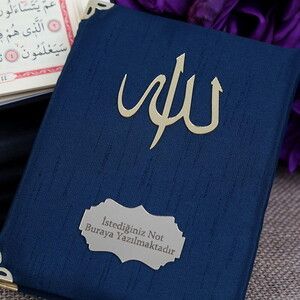 عَمَّ يَتَسَاءَلُونَ
الَّذِي هُمْ
سَيَعْلَمُونَ
الله
İstediğiniz Not
Buraya Yazılmaktadır